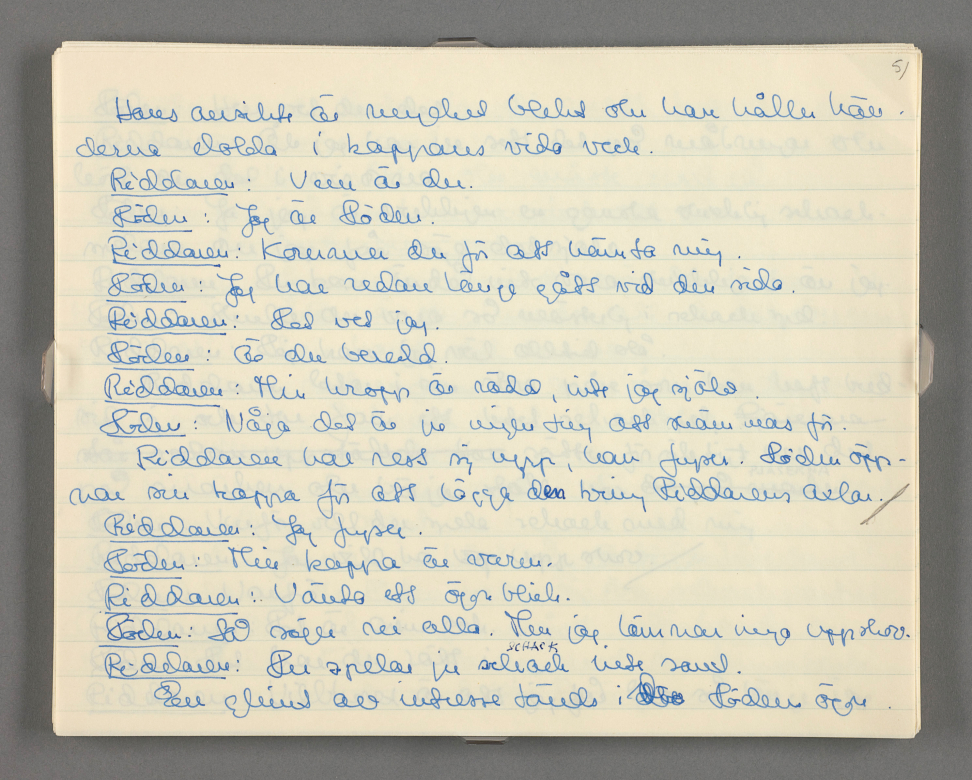 5/
Hans ansikte är mycket blekt och han håller hän-
derna dolda i kappans vida veck.
Riddaren: Vem är du.
Döden: Jag är Döden.
Riddaren: Kommer du för att hämta mig.
Döden: Jag har redan länge gått vid din sida.
Riddaren: Det vet jag.
Döden: Är du beredd.
Riddaren: Min kropp är rädd, inte jag själv.
Döden: Nåja det är ju ingenting att skämmas för.
Riddaren har rest sig upp, han fryser. Döden öpp-
nar sin kappa för att lägga den kring Riddarens axlar.
Riddaren: Jag fryser.
Döden: Min kappa är varm.
Riddaren: Vänta ett ögonblick.
Döden: Så säger ni alla. Men jag lämnar inga uppskov.
SCHACK
Riddaren: Du spelar ju schack inte sant.
En glimt av intresse tänds i Dödens ögon.